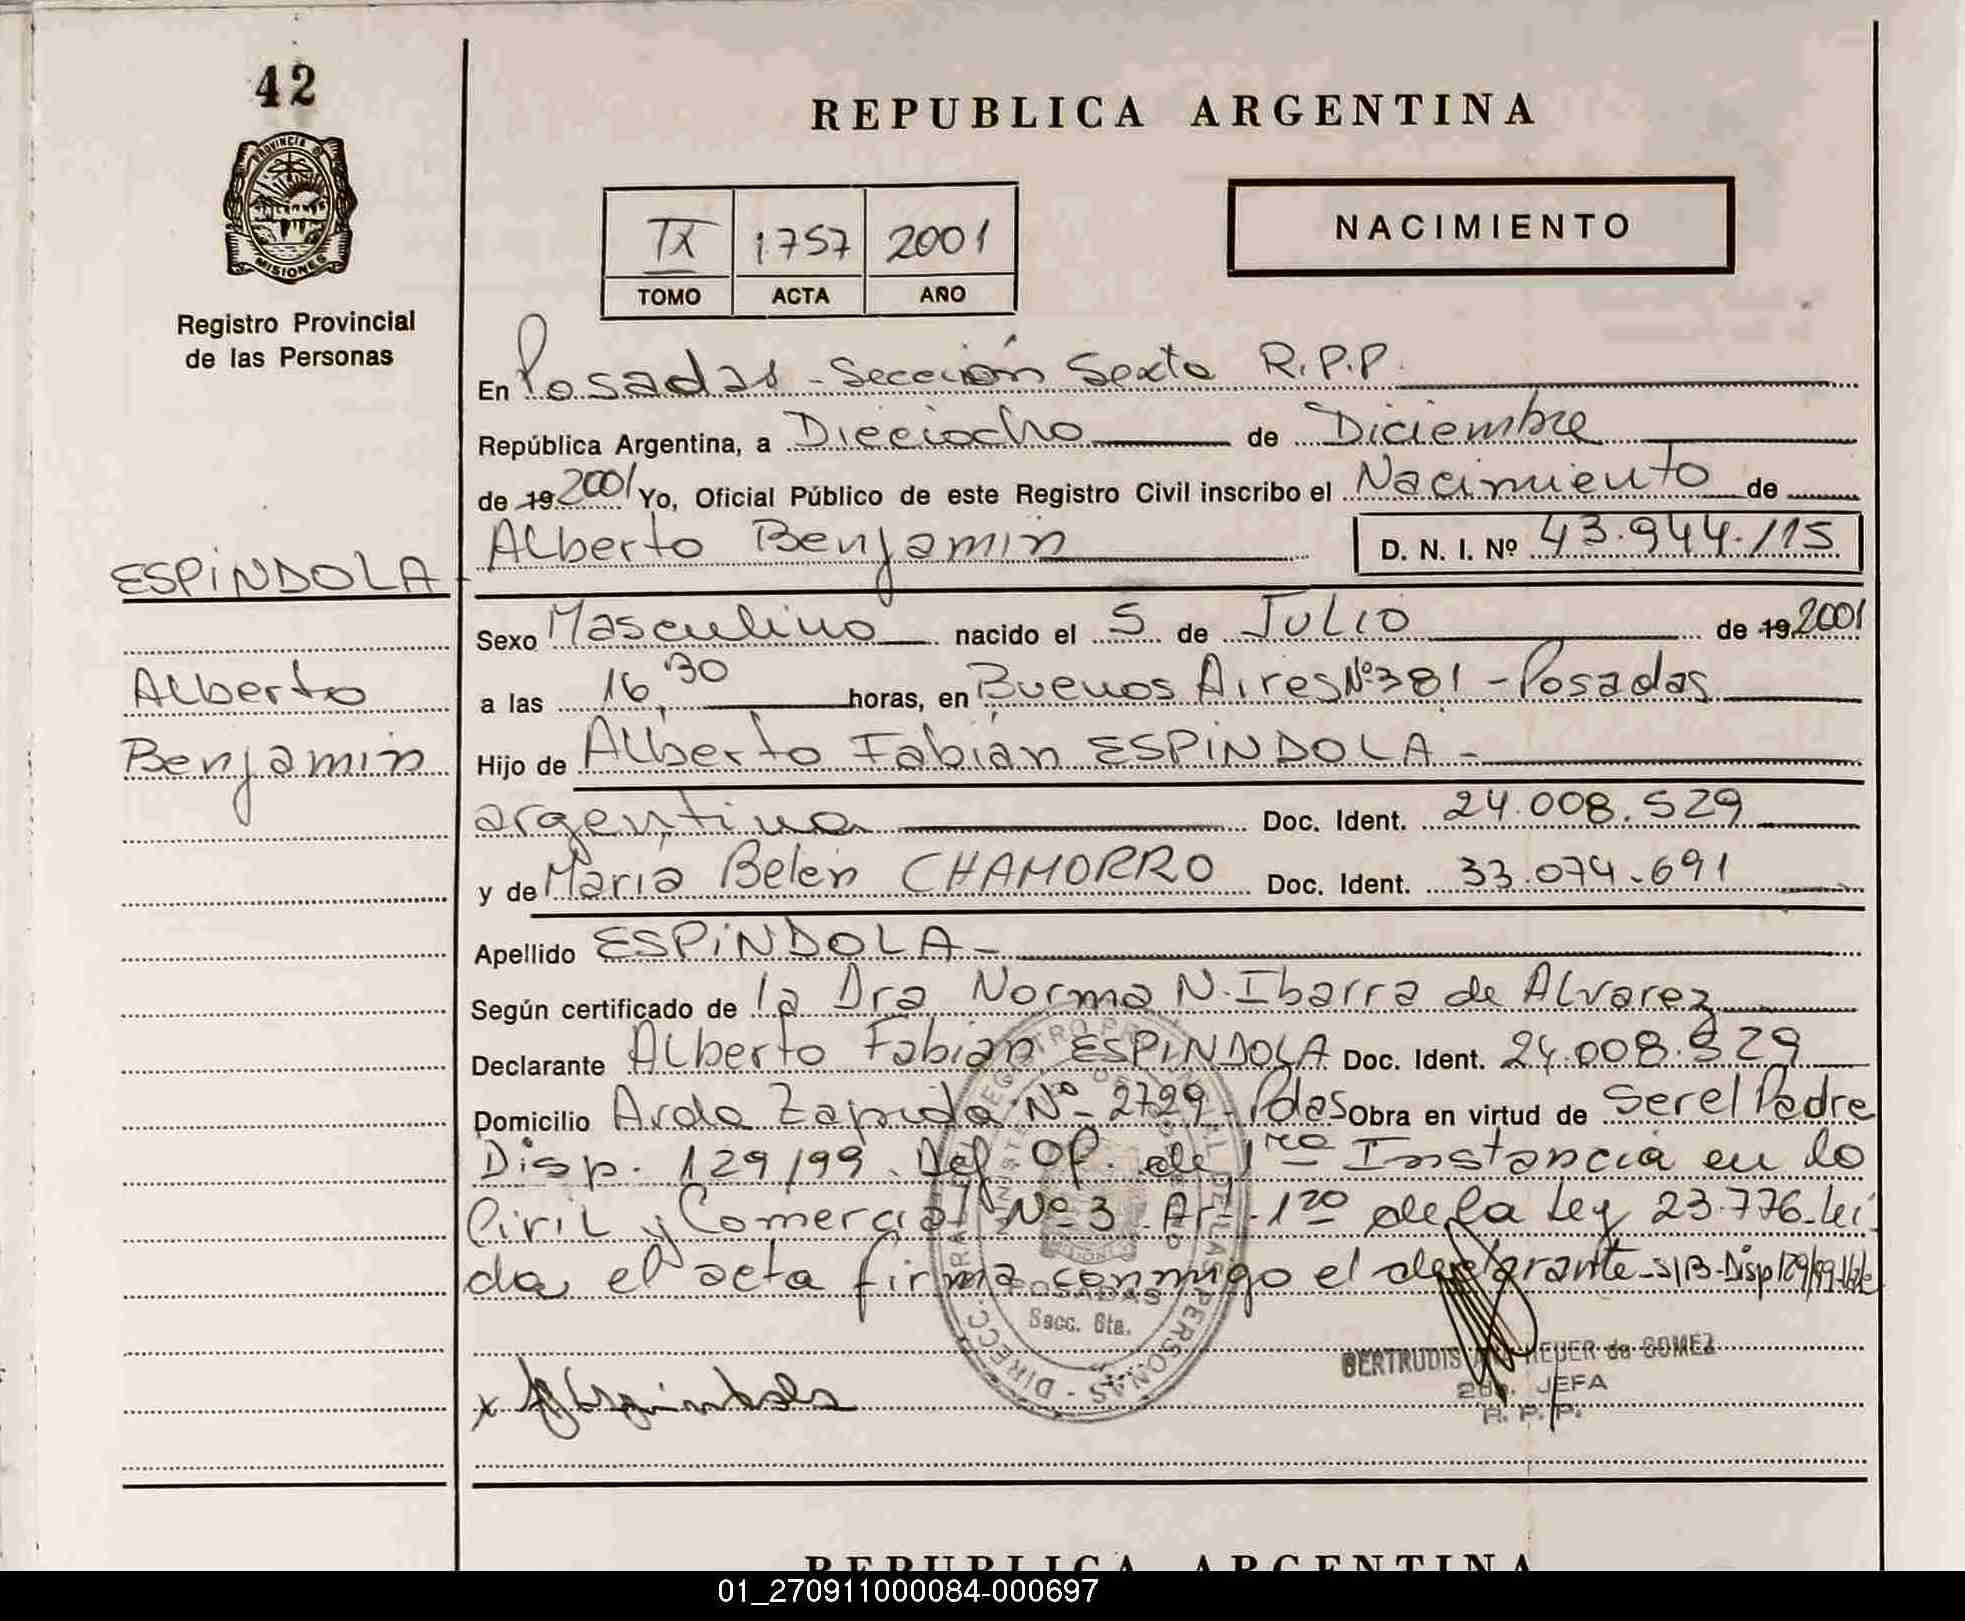 42
REPUBLICA ARGENTINA
PROVINCIA DE
MISIONES
Registro Provincial
de las Personas
IX 1757 2001
TOMO ACTA AÑO
NACIMIENTO
En Posadas - Sección Sexta R.P.P.
República Argentina, a Dieciocho de Diciembre
de 19 2001 Yo, Oficial Público de este Registro Civil inscribo el Nacimiento de
ESPINDOLA - Alberto Benjamin D. N. I. Nº 43.944.115
Sexo Masculino nacido el 5 de JULIO de 19 2001
Alberto
a las 16,30 horas, en Buenos Aires Nº 381 - Posadas
Benjamin
Hijo de Alberto Fabián ESPINDOLA -
argentina Doc. Ident. 24.008.529
y de María Belén CHAMORRO Doc. Ident. 33.074.691
Apellido ESPINDOLA -
Según certificado de la Dra Norma N. Ibarra de Alvarez
Declarante Alberto Fabián ESPINDOLA Doc. Ident. 24.008.529
Domicilio Avda Zapiola Nº 2729 - Pdas Obra en virtud de Ser el Padre
Disp. 129/99. Def. Of. de 1ra Instancia en lo
Civil y Comercial Nº 3 Art. 1ro de la Ley 23.776. Leí
da, el acta firma conmigo el declarante - S/B - Disp 129/99 - Vale
POSADAS
Secc. 6ta.
GERTRUDIS HEUER de GOMEZ
2da. JEFA
R. P. P.
x
REPUBLICA ARGENTINA
01_270911000084-000697